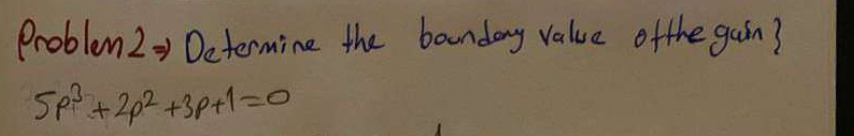 Problem 2 ⇒ Determine the boundary value of the gain }
5p³ + 2p² + 3p + 1 = 0